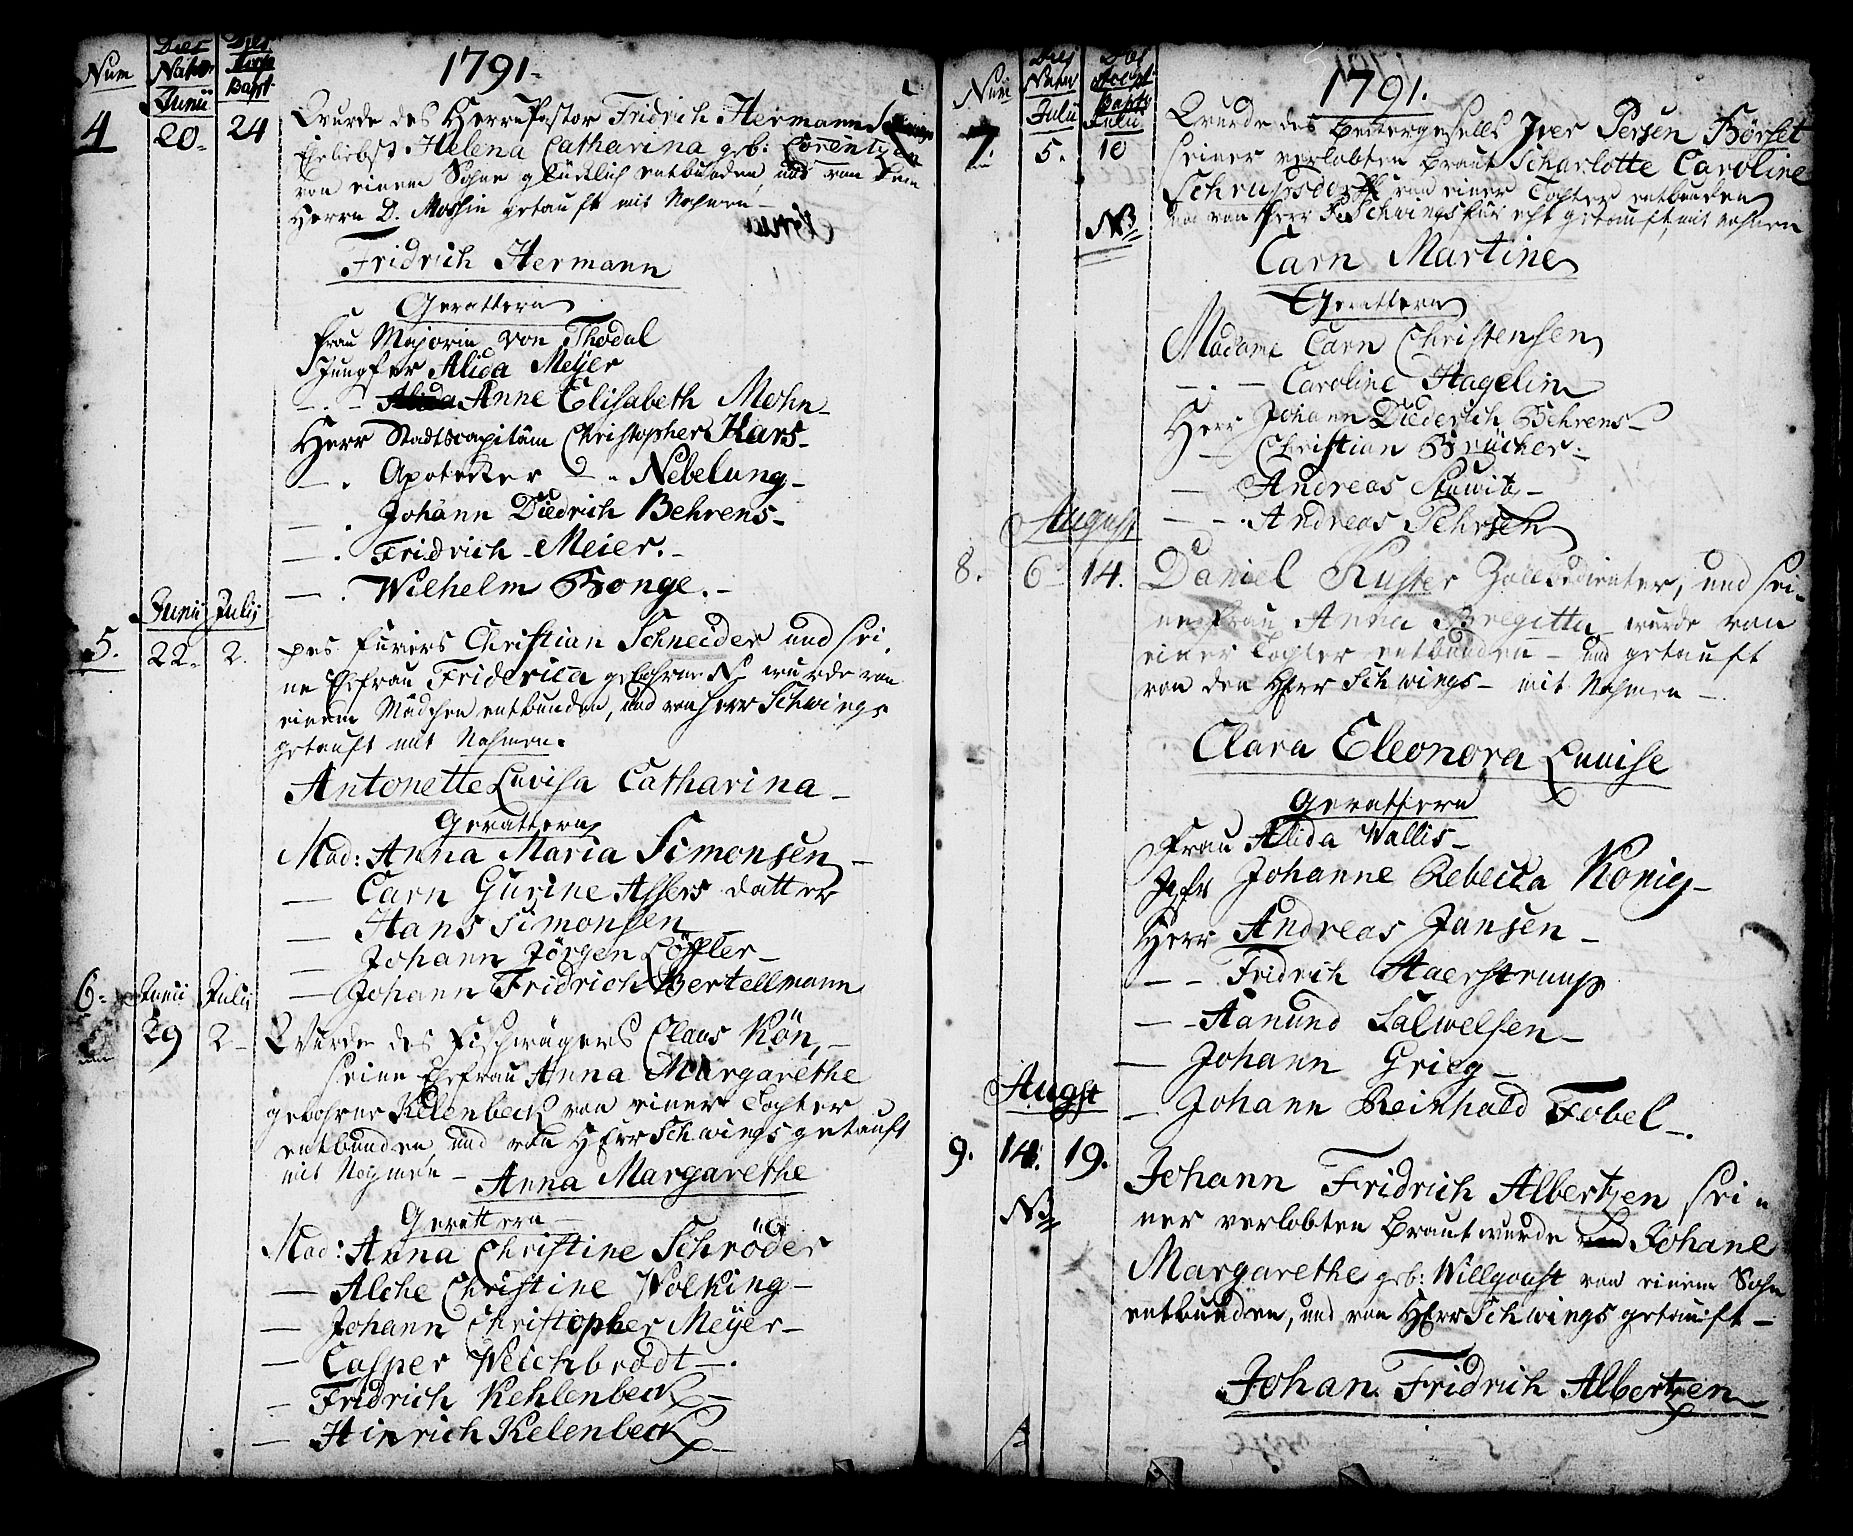 Num Dies Natæ Dies Bapt
1791.
Junii
4 20. 24 Wurde des Herrn Pastor Fridrich Hermann
Eheliebst Helena Catharina geb: Lorentzen
von einem Sohne glücklich entbunden, und von dem
Herrn D. Mossin getauft mit Nahmen
Fridrich Hermann
Gevattern
Frau Majorin von Thodal
Jungfer Alida Meÿer
— . — Anne Elisabeth Mohn
Herr Stadtscapitäm Christopher Kars
— . Apotecker — . Nebelung
— . Johann Diedrich Behrens
— . Fridrich Meier.
— . Wilhelm Bonge.
Junii Julii
5. 22. 2. Des Furirs Christian Schneider und sei
ne Ehefrau Friderica gebohrne N. wurde von
einem Mädchen entbunden, und von Herr Schwings
getauft mit Nahmen.
Antonette Lovisa Catharina
Gevattern
Mad: Anna Maria Simonsen
— Carn Gurine Assers datter
— Hans Simonsen
— Johann Jörgen Löffler
— Johann Fridrich Bertellmann
6. Junii Julii
29 2 Wurde des Fischwägers Claas Kön,
seine Ehefrau Anna Margarethe
gebohrne Kelenbeck von einer Tochter
entbunden und von Herr Schwings getauft
mit Nahmen — Anna Margarethe
Gevattern
Mad: Anna Christine Schröder
— Alche Christine Wolking
— Johann Christopher Meÿer
— Casper Weichbrodt
— Fridrich Kehlenbeck
— Hinrich Kelenbeck
Num Dies Bapt
1791.
Julii Julii
7. 5. 10 Wurde des Beckergesells Iver Persen Börset
seiner verlobten Braut Scharlotte Caroline
von einer Tochter entbunden
NB und von Herr Schwings für echt getauft mit Nahmen
Carn Martine
Gevattern
Madame Carn Christensen
— . — Caroline Hagelin
Herr Johann Diederich Behrens
— Christian Brücher
— Andreas Stuwitz
— . Andreas Pehrsen
August
8. 6 14. Daniel Kuster Zollbedienter, und sei
ne Frau Anna Bregitta wurde von
einer Tochter entbunden — und getauft
von den Herr Schwings — mit Nahmen —
Clara Eleonora Luuise
Gevattern
Frau Alida Wallis
Jgfr Johanne Rebecka König
Herr Andreas Jansen
— Fridrich Staerstrup
— Aanund Salwelsen
— Johann Grieg
— Johann Reinhald Fobel
Augst
9. 14. 19. Johann Fridrich Albertzen sei
NB ner verlobten Braut wurde Johane
Margarethe geb: Willgohst von einem Sohn
entbunden, und von Herr Schwings getauft —
Johan Fridrich Albertzen